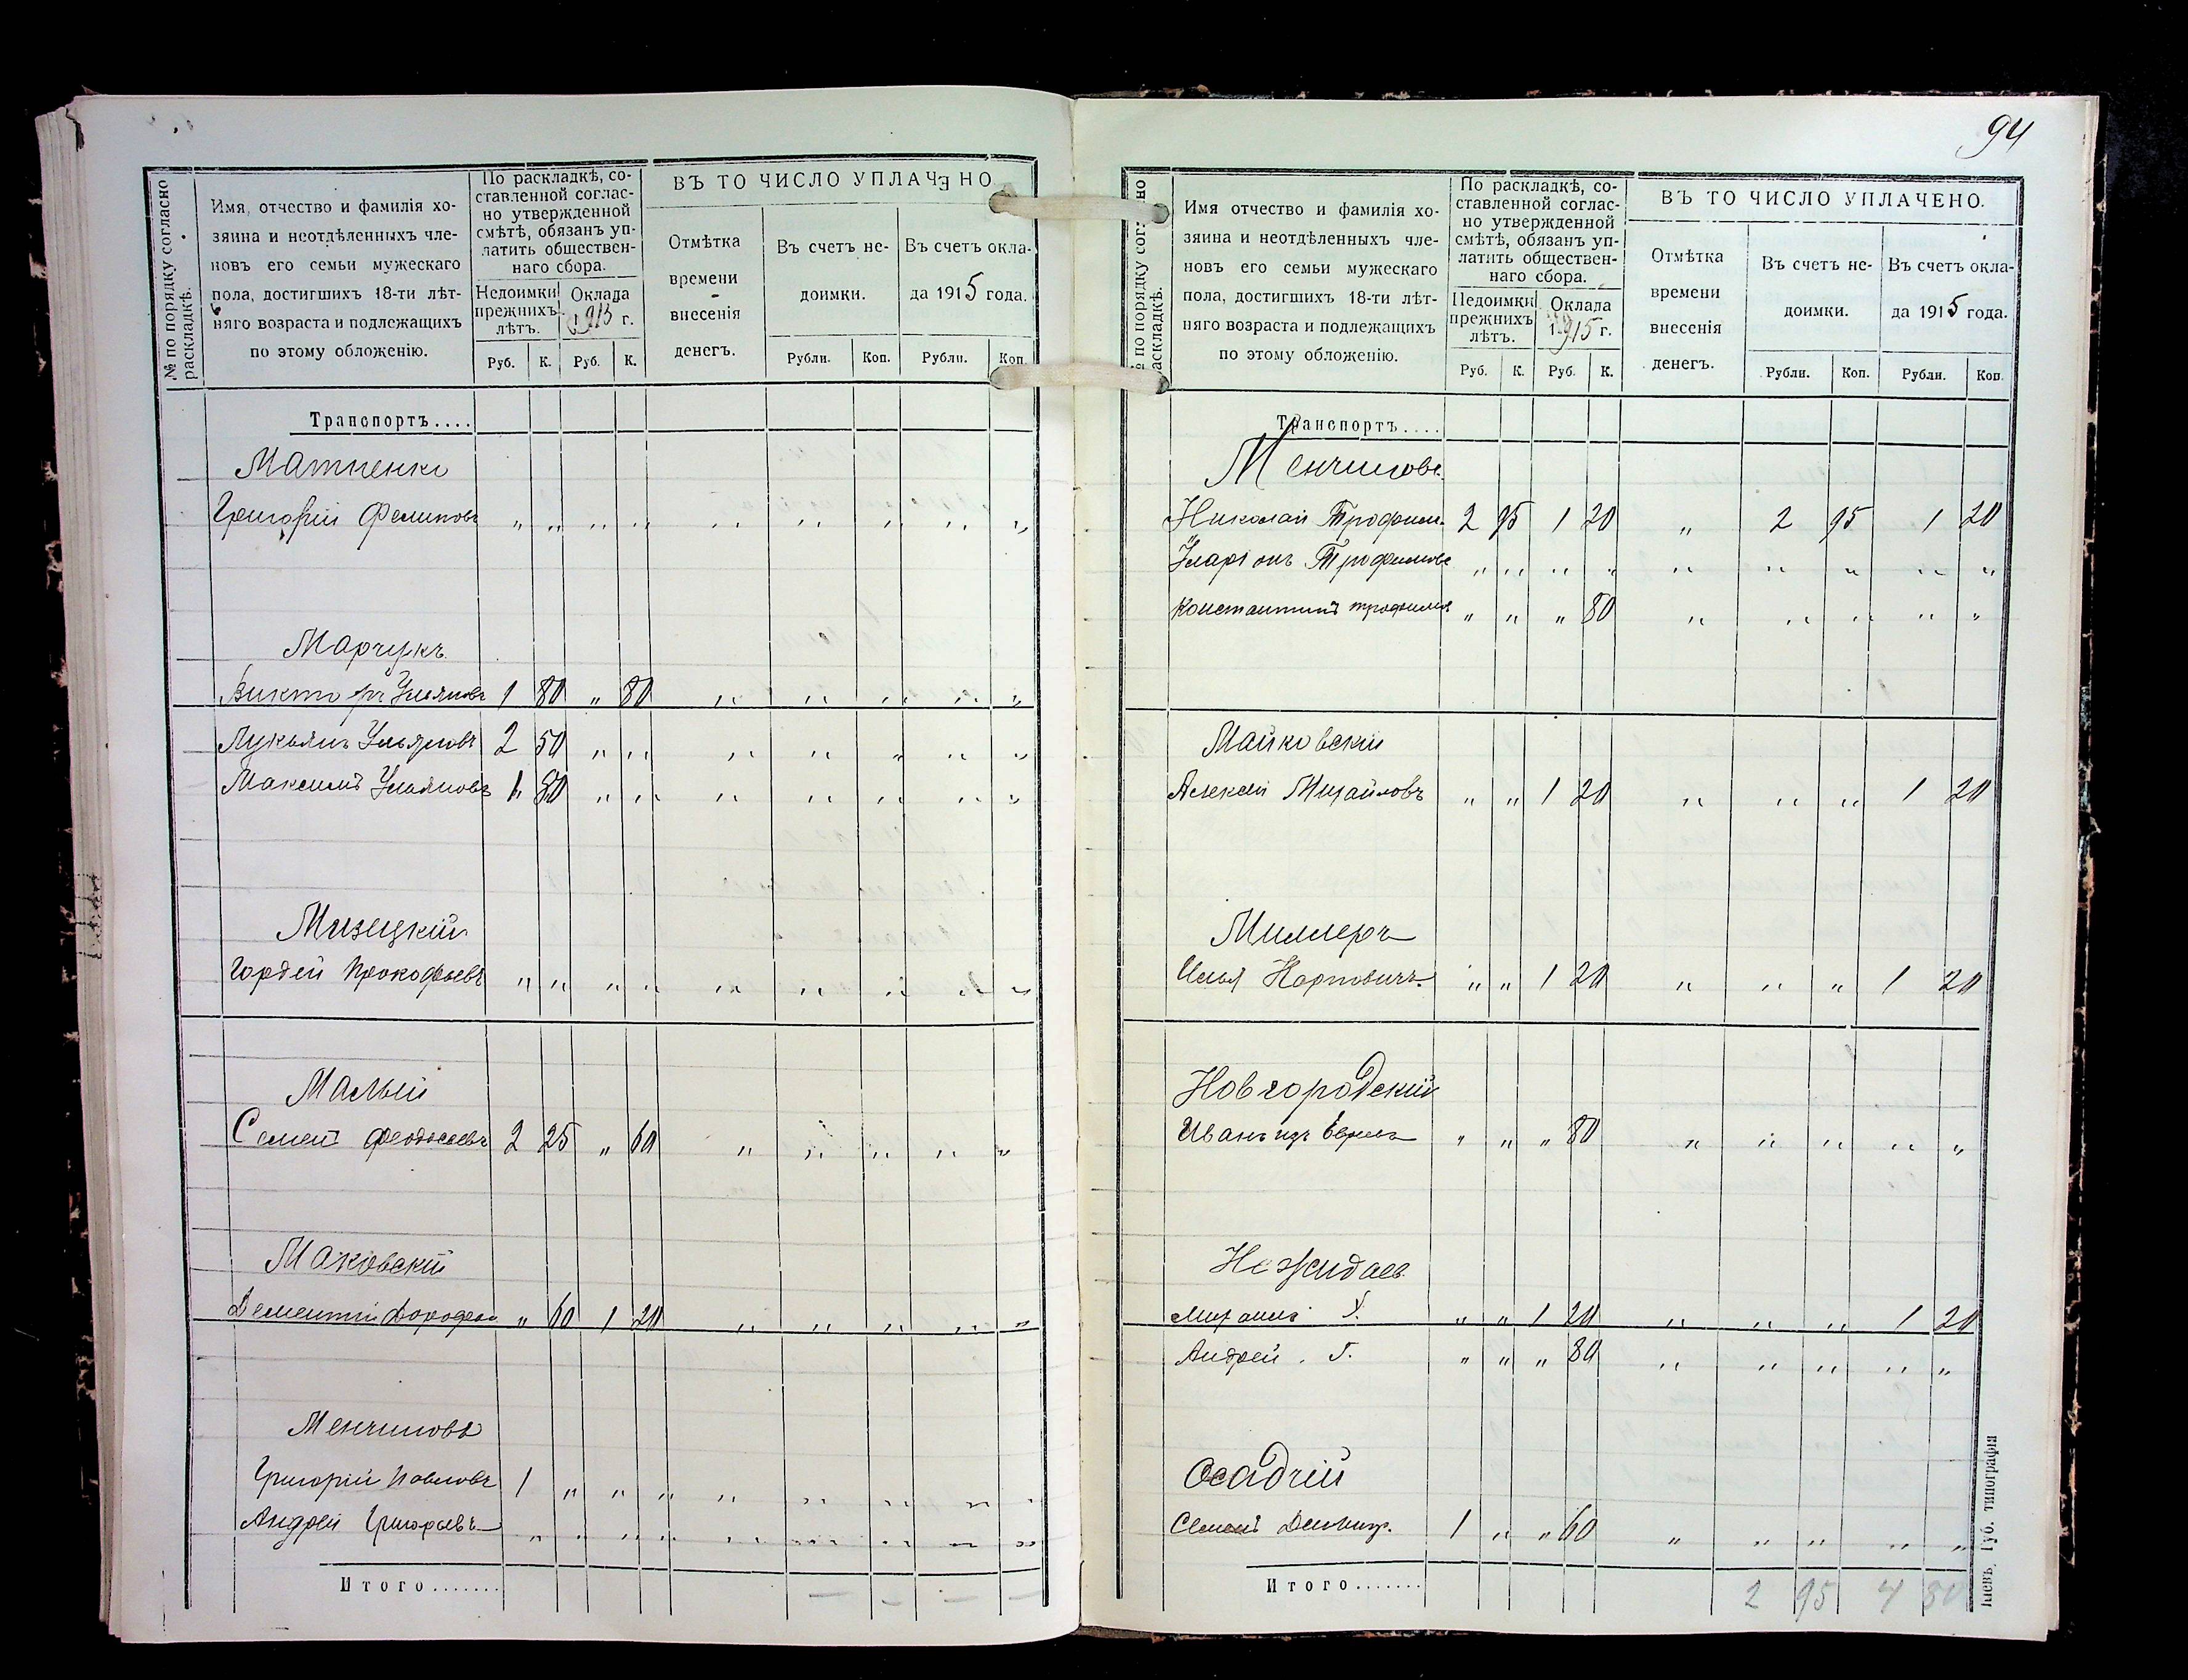 94
№ по порядку согласно раскладкѣ.
Имя, отчество и фамилія хо-
зяина и неотдѣленныхъ чле-
новъ его семьи мужескаго
пола, достигшихъ 18-ти лѣт-
няго возраста и подлежащихъ
по этому обложенію.
По раскладкѣ, со-
ставленной соглас-
но утвержденной
смѣтѣ, обязанъ уп-
латить обществен-
наго сбора.
Недоимки прежнихъ лѣтъ.
Оклада 1915 г.
Руб. К. Руб. К.
ВЪ ТО ЧИСЛО УПЛАЧЕНО
Отмѣтка времени внесенія денегъ.
Въ счетъ не-
доимки.
Въ счетъ окла-
да 1915 года.
Рубли. Коп. Рубли. Коп.
Транспортъ....
Матіенко
Григорій Филиповъ " " " " " " " " "
Марчукъ
Викторъ Ульяновъ 1 80 " 80 " " " " "
Лукьянъ Ульяновъ 2 50 " " " " " " "
Максимъ Ульяновъ 1 80 " " " " " " "
Мизецкій
Гордей Прокофьевъ " " " " " " " " "
Малый
Семенъ Феодосіевъ 2 25 " 60 " " " " "
Маковскій
Дементій Дорофеев " 60 1 20 " " " " "
Менчиковъ
Григорій Павловъ 1 " " " " " " " "
Андрей Григорьевъ " " " " " " " " "
Итого.......
№ по порядку согласно раскладкѣ.
Имя отчество и фамилія хо-
зяина и неотдѣленныхъ чле-
новъ его семьи мужескаго
пола, достигшихъ 18-ти лѣт-
няго возраста и подлежащихъ
по этому обложенію.
По раскладкѣ, со-
ставленной соглас-
но утвержденной
смѣтѣ, обязанъ уп-
латить обществен-
наго сбора.
Недоимки прежнихъ лѣтъ.
Оклада 1915 г.
Руб. К. Руб. К.
ВЪ ТО ЧИСЛО УПЛАЧЕНО.
Отмѣтка времени внесенія денегъ.
Въ счетъ не-
доимки.
Въ счетъ окла-
да 1915 года.
Рубли. Коп. Рубли. Коп.
Транспортъ....
Менчиковъ
Николай Трофим. 2 95 1 20 " 2 95 1 20
Иларіонъ Трофимовъ " " " " " " " " "
Константинъ Трофимов " " " 80 " " " " "
Майковскій
Алексѣй Михайловъ " " 1 20 " " " 1 20
Миллеръ
Илья Карповичъ " " 1 20 " " " 1 20
Новгородскій
Иванъ " " " 80 " " " " "
Нежидаев
" " 1 20 " " " 1 20
Андрей Г. " " " 80 " " " " "
Осадчій
Семенъ 1 " " 60 " " " " "
Итого.......
2 95 4 80
Кіевъ. Губ. типографія